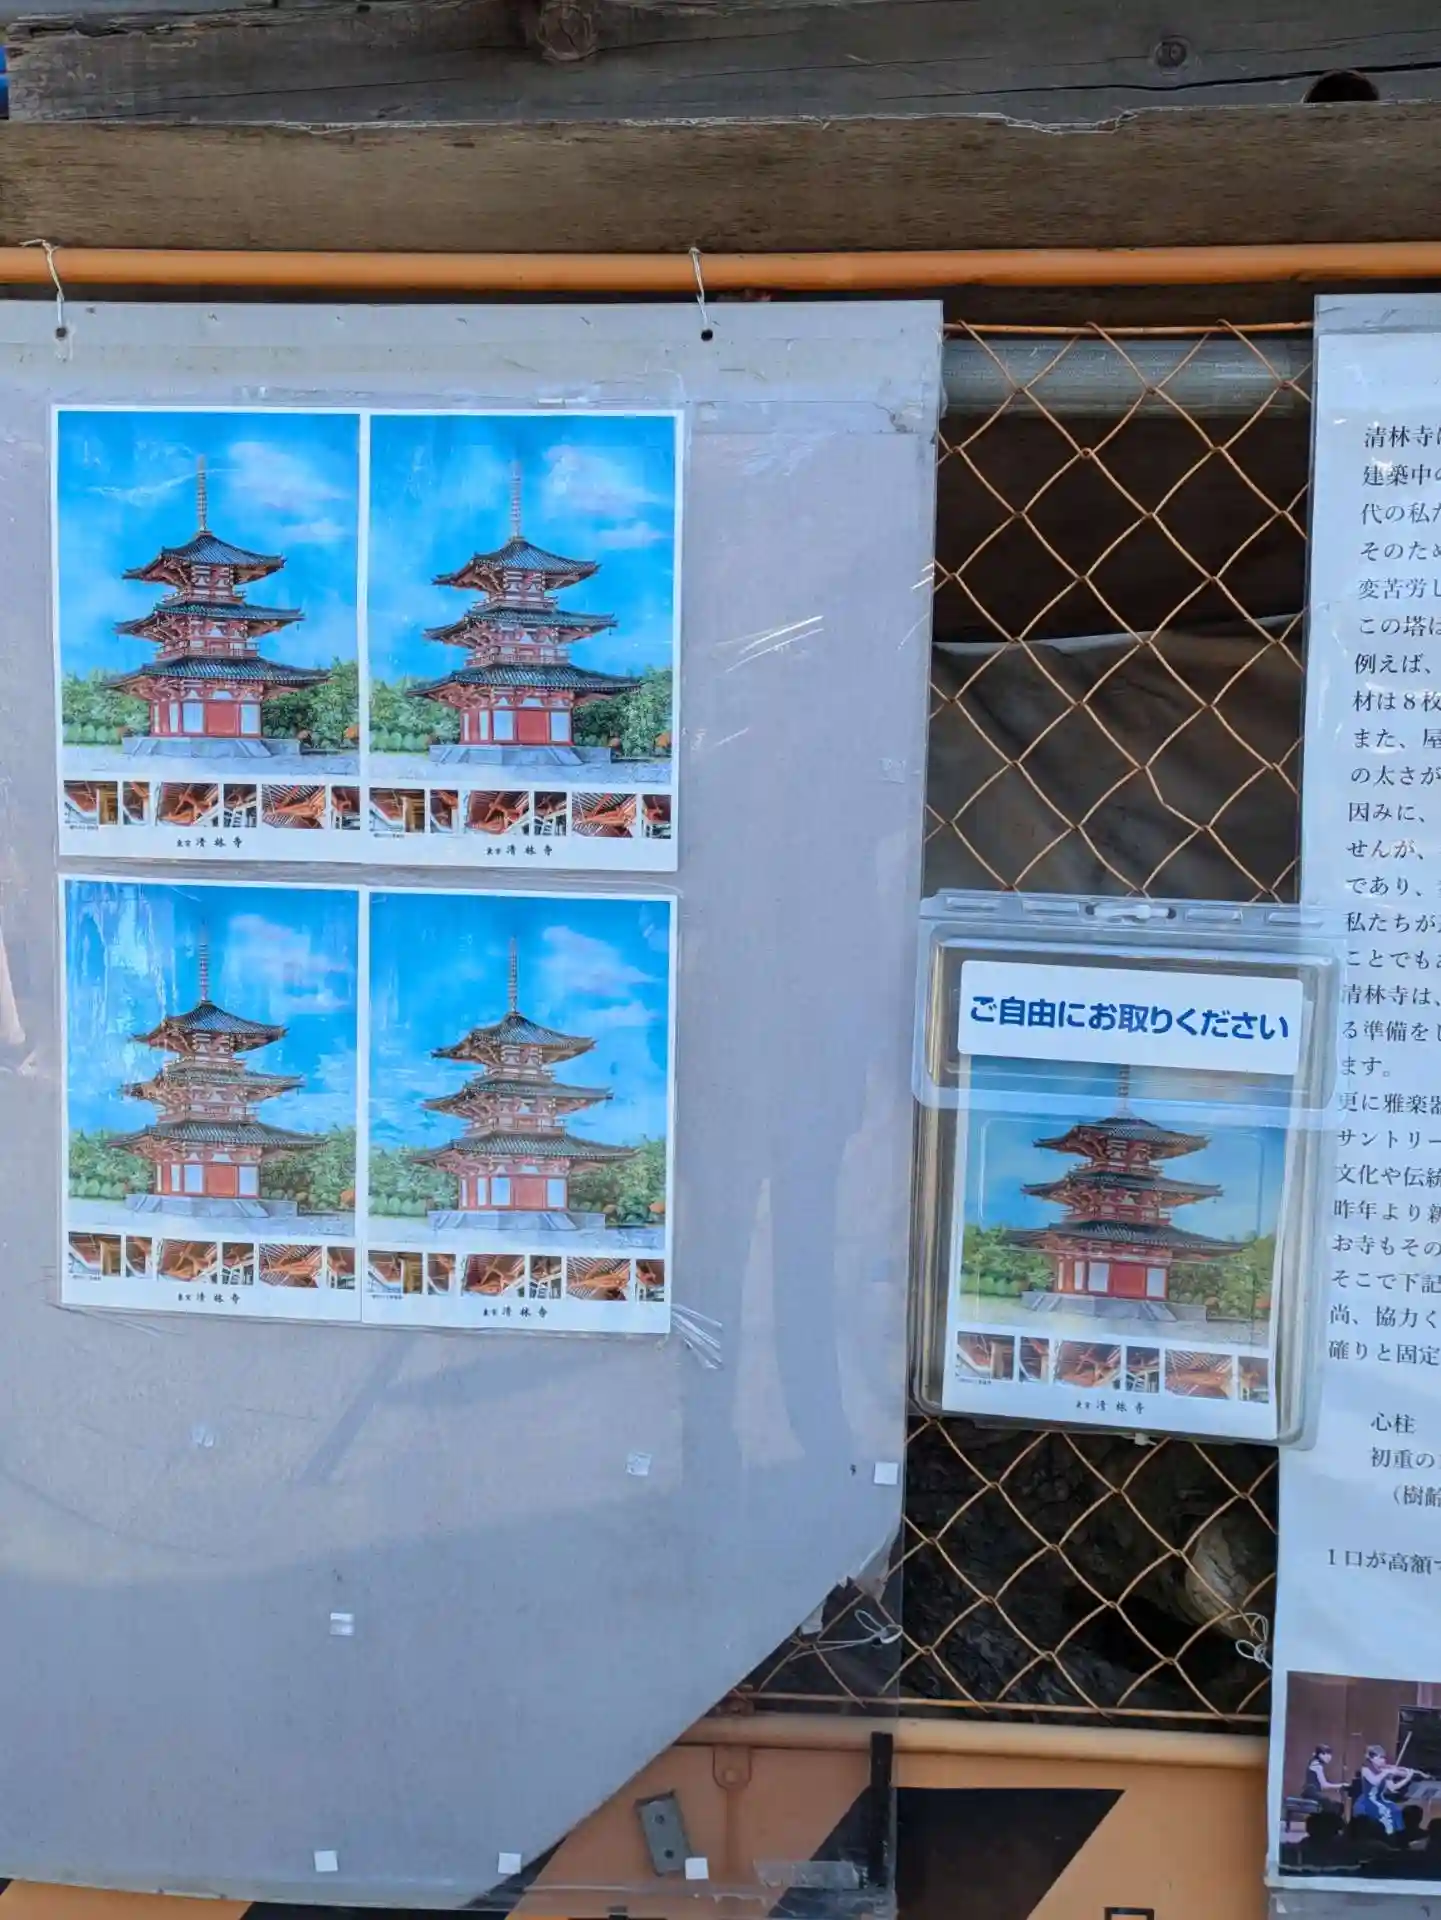 東京 清林寺
東京 清林寺
東京 清林寺
東京 清林寺
ご自由にお取りください
東京 清林寺
清林寺
建築中
代の私
そのため
変苦労し
この塔は
例えば、
材は8枚
また、屋
の太さが
因みに、
せんが、
であり、
私たちが
ことでも
清林寺は、
る準備を
ます。
更に雅楽器
サントリー
文化や伝統
昨年より新
お寺もその
そこで下記
尚、協力く
確りと固定
心柱
初重の
(樹齢
1口が高額